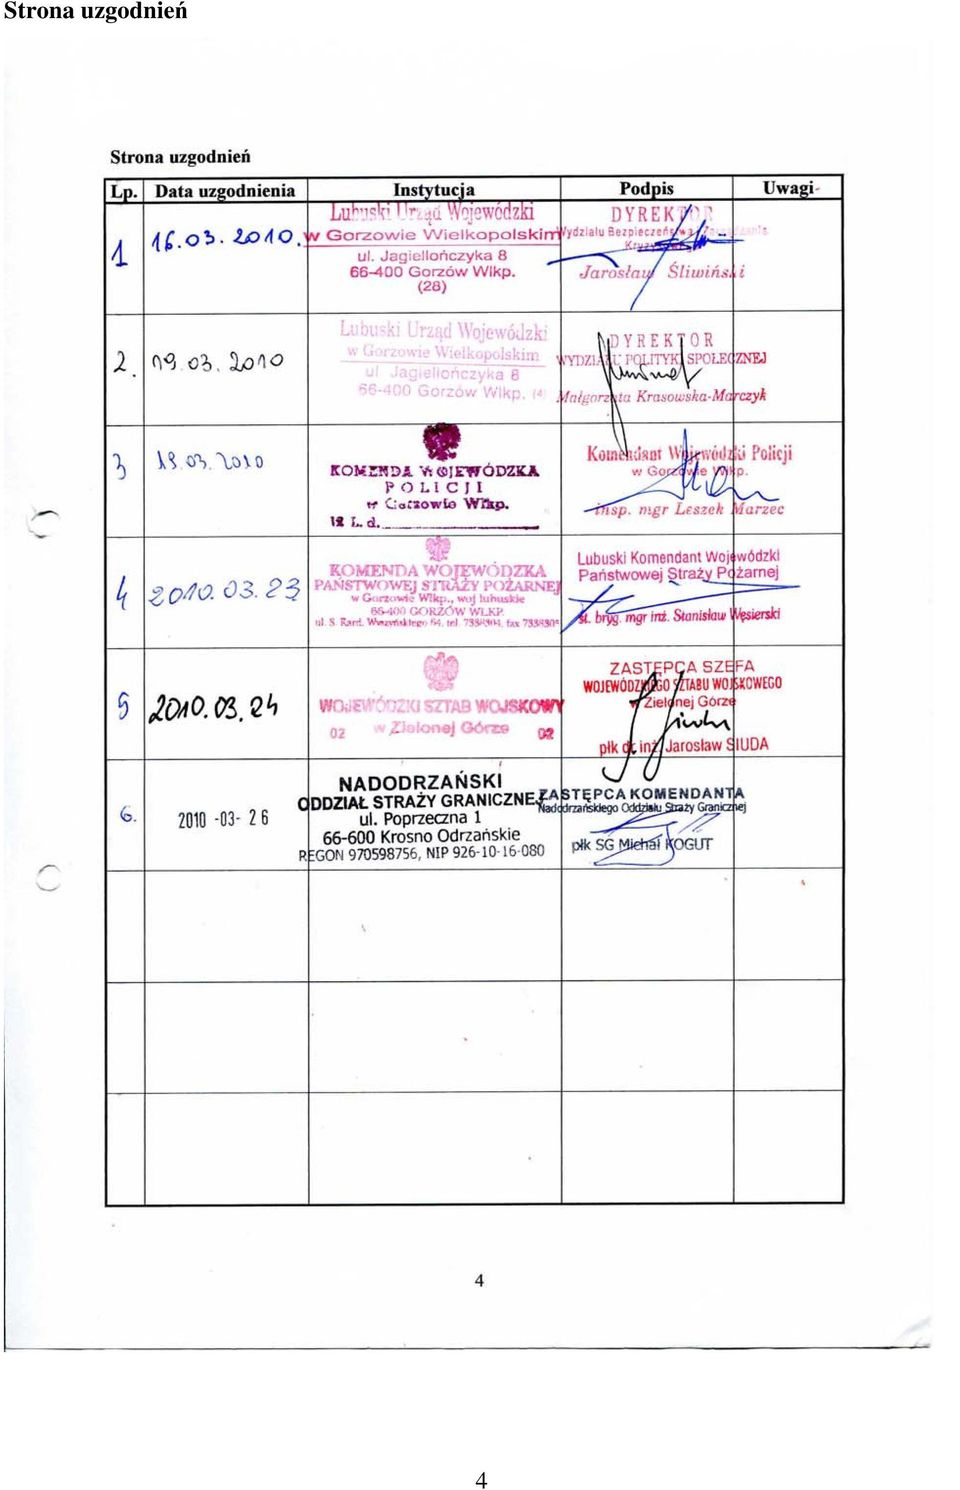 Strona uzgodnień
Strona uzgodnień
Lp. Data uzgodnienia Instytucja Podpis Uwagi
1 16.03.2010.
Lubuski Urząd Wojewódzki
w Gorzowie Wielkopolskim
ul. Jagiellończyka 8
66-400 Gorzów Wlkp.
(28)
DYREKTOR
Wydziału Bezpieczeństwa
Jarosław Śliwiński
2. 19.03.2010
Lubuski Urząd Wojewódzki
w Gorzowie Wielkopolskim
ul. Jagiellończyka 8
66-400 Gorzów Wlkp. (4)
DYREKTOR
WYDZIAŁU POLITYKI SPOŁECZNEJ
Małgorzata Krasowska-Marczyk
3 19.03.2010
KOMENDA WOJEWÓDZKA
POLICJI
w Gorzowie Wlkp.
L. d.
Komendant Wojewódzki Policji
w Gorzowie Wlkp.
insp. mgr Leszek Marzec
4 2010.03.23
KOMENDA WOJEWÓDZKA
PAŃSTWOWEJ STRAŻY POŻARNEJ
w Gorzowie Wlkp., woj lubuskie
66-400 GORZÓW WLKP.
ul. S. Kard. Wyszyńskiego 64, tel. 7338304, fax 733830
Lubuski Komendant Wojewódzki
Państwowej Straży Pożarnej
st. bryg. mgr inż. Stanisław Węsierski
5 2010.03.24
WOJEWÓDZKI SZTAB WOJSKOWY
02 w Zielonej Górze 02
ZASTĘPCA SZEFA
WOJEWÓDZKIEGO SZTABU WOJSKOWEGO
w Zielonej Górze
płk dr inż. Jarosław SIUDA
6. 2010 -03- 26
NADODRZAŃSKI
ODDZIAŁ STRAŻY GRANICZNEJ
ul. Poprzeczna 1
66-600 Krosno Odrzańskie
REGON 970598756, NIP 926-10-16-080
ZASTĘPCA KOMENDANTA
Nadodrzańskiego Oddziału Straży Granicznej
płk SG Michał KOGUT
4
4